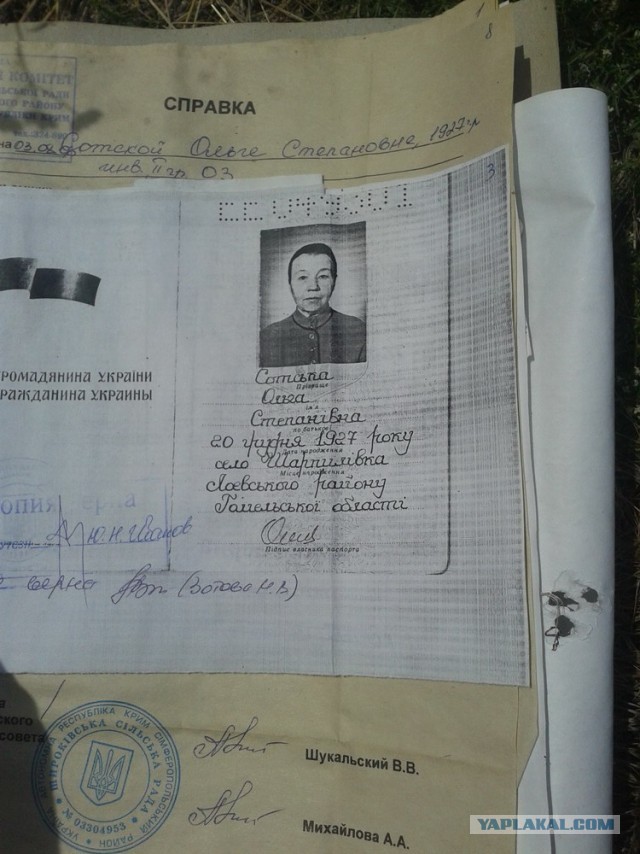 1
8
Й КОМИТЕТ
СПРАВКА
на 03.02 Сотской Ольге Степановне, 1927 г
инв. II гр. 03
3
ГРОМАДЯНИНА УКРАЇНИ
ГРАЖДАНИНА УКРАИНЫ
Сотська
Прізвище
Ольга
Ім'я
Степанівна
по батькові
20 грудня 1927 року
Дата народження
село Шарпилівка
Місце народження
Лоєвського району
Гомельської області
Підпис власника паспорта
КОПИЯ верна
верна (Зотова Н.В)
совета
РЕСПУБЛІКА КРИМ СІМФЕРОПОЛЬСЬКИЙ РАЙОН УКРАЇНА
ШИРОКІВСЬКА СІЛЬСЬКА РАДА
№ 03304955
Шукальский В.В.
Михайлова А.А.
YAPLAKAL.COM